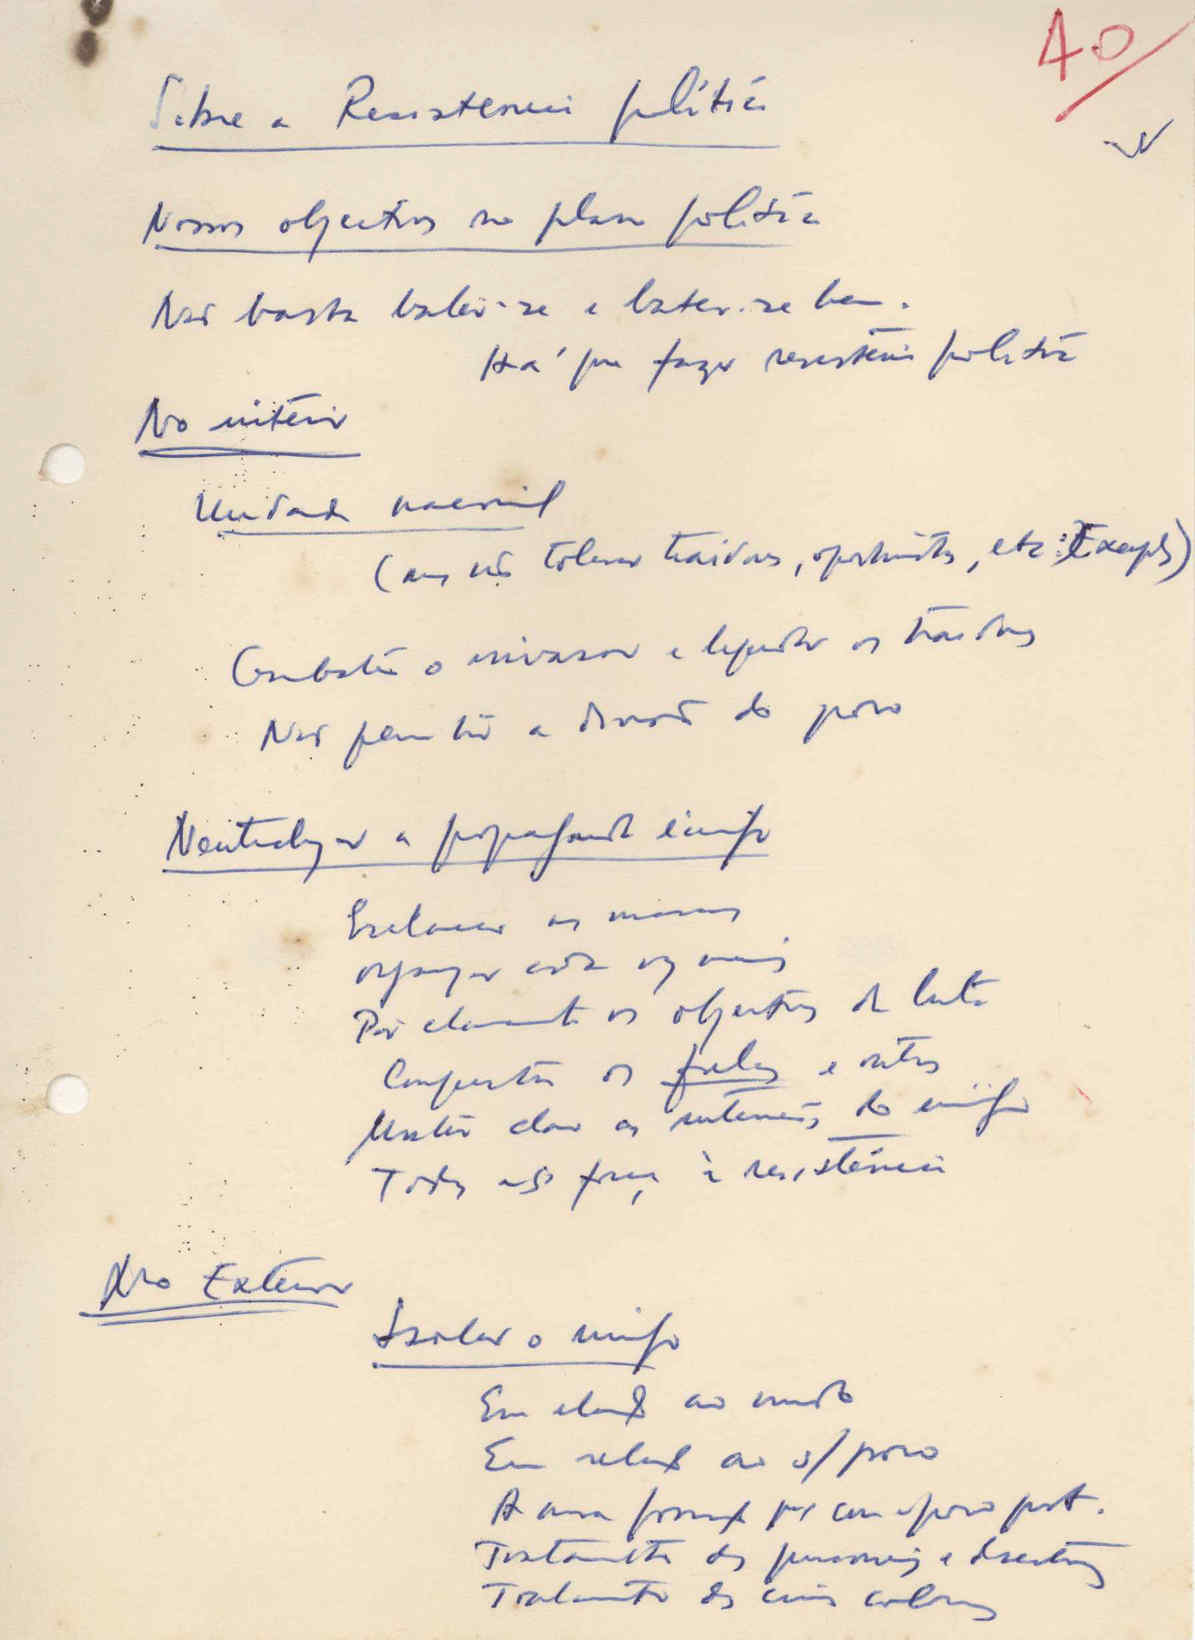 40
Sobre a Resistencia política
Nossos objectivos no plano político
Não basta bater-se e bater-se bem.
Há que fazer resistência política
No interior
Unidade nacional
(mas não tolerar traidores, oportunistas, etc. Exemplos)
Combater o invasor e liquidar os traidores
Não permitir a divisão do povo
Neutralizar a propaganda inimiga
Esclarecer as massas
organizar cada vez mais
Pôr claramente os objectivos da luta
os fulas e outros
Manter claro as intenções do inimigo
Todas as forças à resistência
No Exterior
Isolar o inimigo
Em relação ao mundo
Em relação ao s/ povo
A nossa posição para com o povo port.
Tratamento dos prisioneiros e desertores
Tratamento dos civis colonos